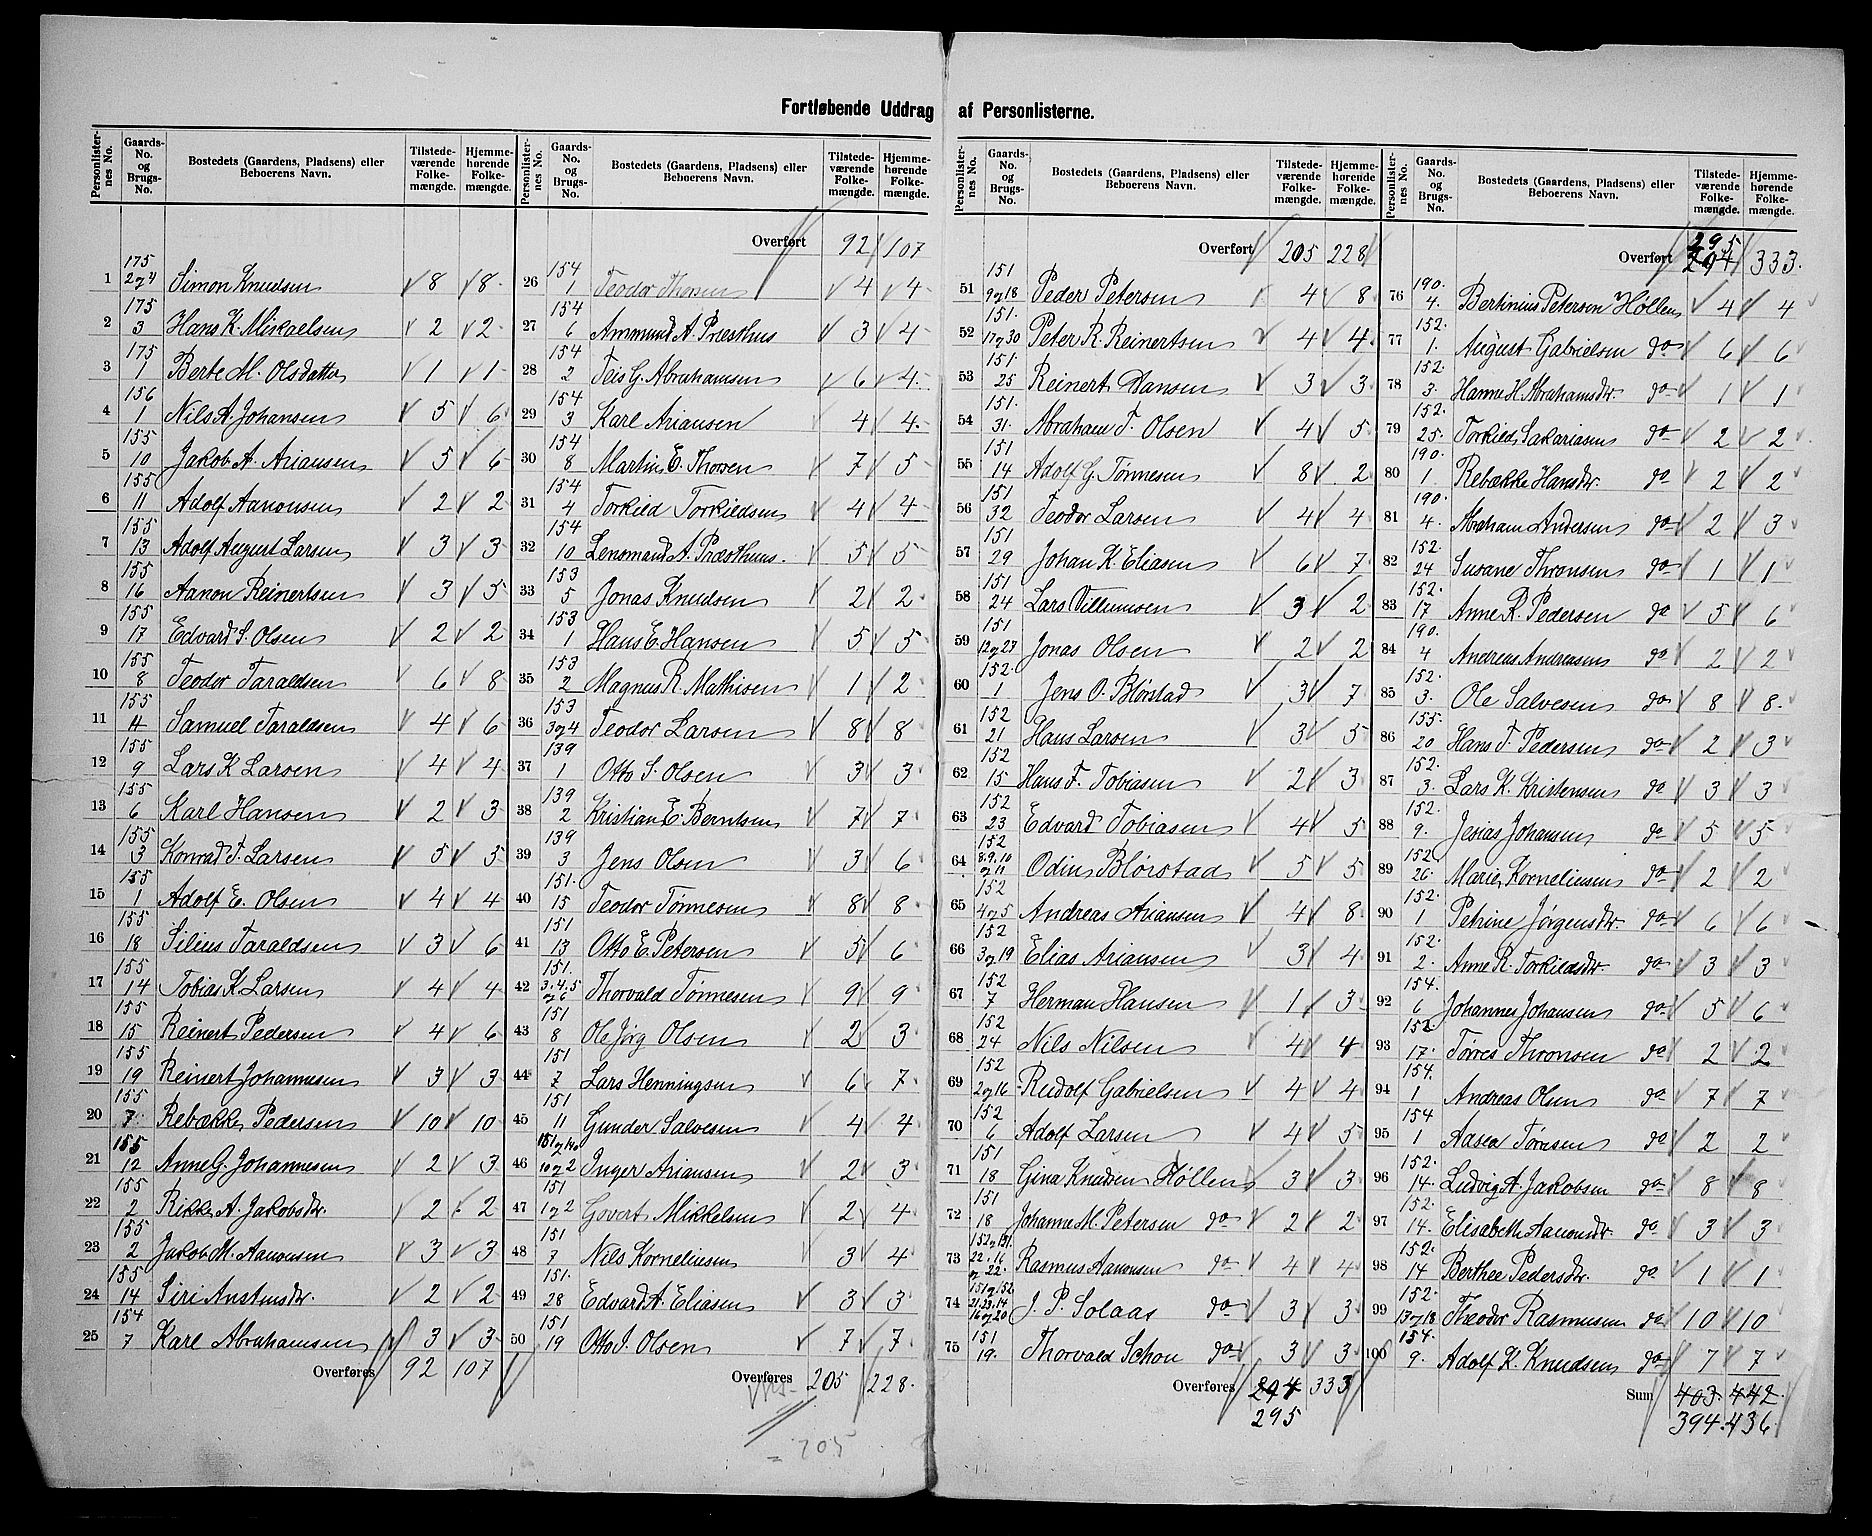 Fortløbende Uddrag af Personlisterne.
Personlisternes No. | Gaards-No. og Brugs-No. | Bostedets (Gaardens, Pladsens) eller Beboerens Navn. | Tilstedeværende Folkemængde. | Hjemmehørende Folkemængde.
1 | 175 2og4 | Simon Knudsen | 8 | 8
2 | 175 3 | Hans K. Mikaelsen | 2 | 2
3 | 175 1 | Berte M. Olsdatter | 1 | 1
4 | 156 1 | Nils A. Johansen | 5 | 6
5 | 155 10 | Jakob A. Ariansen | 5 | 6
6 | 155 11 | Adolf Aanonsen | 2 | 2
7 | 155 13 | Adolf August Larsen | 3 | 3
8 | 155 16 | Aanon Reinertsen | 3 | 5
9 | 155 17 | Edvard S. Olsen | 2 | 2
10 | 155 8 | Teodor Taraldsen | 6 | 8
11 | 155 4 | Samuel Taraldsen | 4 | 6
12 | 155 9 | Lars K. Larsen | 4 | 4
13 | 155 6 | Karl Hansen | 2 | 3
14 | 155 3 | Konrad T. Larsen | 5 | 5
15 | 155 1 | Adolf E. Olsen | 4 | 4
16 | 155 18 | Silius Taraldsen | 3 | 6
17 | 155 14 | Tobias K. Larsen | 4 | 4
18 | 155 15 | Reinert Pedersen | 4 | 6
19 | 155 19 | Reinert Johannesen | 3 | 3
20 | 155 7 | Rebækka Pedersen | 10 | 10
21 | 155 12 | Anne G. Johannesen | 2 | 3
22 | 155 2 | Rikke A. Jakobsdr. | 2 | 2
23 | 155 2 | Jakob M. Aanonsen | 3 | 3
24 | 155 14 | Siri Anstensdr. | 2 | 2
25 | 154 7 | Karl Abrahamsen | 3 | 3
Overføres 92 107
Personlisternes No. | Gaards-No. og Brugs-No. | Bostedets (Gaardens, Pladsens) eller Beboerens Navn. | Tilstedeværende Folkemængde. | Hjemmehørende Folkemængde.
Overført 92 107
26 | 154 1 | Teodor Thorsen | 4 | 4
27 | 154 6 | Ammund A. Præsthus | 3 | 4
28 | 154 2 | Teis G. Abrahamsen | 6 | 4
29 | 154 3 | Karl Ariansen | 4 | 4
30 | 154 8 | Martin E. Thorsen | 7 | 5
31 | 154 4 | Torkild Torkildsen | 4 | 4
32 | 154 10 | Lensmand A. Præsthus. | 5 | 5
33 | 153 5 | Jonas Knudsen | 2 | 2
34 | 153 1 | Hans E. Hansen | 5 | 5
35 | 153 2 | Magnus R. Mathisen | 1 | 2
36 | 153 3og4 | Teodor Larsen | 8 | 8
37 | 139 1 | Otto S. Olsen | 3 | 3
38 | 139 2 | Kristian E. Berntsen | 7 | 7
39 | 139 3 | Jens Olsen | 3 | 6
40 | 151. 15 | Teodor Tønnesen | 8 | 8
41 | 151 13 | Otto E. Petersen | 5 | 6
42 | 151. 3.4.5 og 6 | Thorvald Tønnesen | 9 | 9
43 | 151 8 | Ole Jørg Olsen | 2 | 3
44 | 151 7 | Lars Henningsen | 6 | 7
45 | 151 11 | Gunder Salvesen | 4 | 4
46 | 10og2 | Inger Ariansen | 2 | 3
47 | 151 1og2 | Govert Mikkelsen | 2 | 4
48 | 151 7 | Nils Korneliusen | 3 | 4
49 | 151. 28 | Edvard A. Eliasen | 3 | 3
50 | 151 19 | Otto J. Olsen | 7 | 7
Overføres 205 228.
= 205
Personlisternes No. | Gaards-No. og Brugs-No. | Bostedets (Gaardens, Pladsens) eller Beboerens Navn. | Tilstedeværende Folkemængde. | Hjemmehørende Folkemængde.
Overført 205 228
51 | 151 9og18 | Peder Petersen | 4 | 8
52 | 151. 17og30 | Peter R. Reinertsen | 4 | 4
53 | 151. 25 | Reinert Hansen | 3 | 3
54 | 151. 31. | Abraham T. Olsen | 4 | 5
55 | 151 14 | Adolf G. Tønnesen | 8 | 2
56 | 151 32 | Teodor Larsen | 4 | 4
57 | 151 29 | Johan K. Eliasen | 6 | 7
58 | 151 24 | Lars Villumsen | 3 | 2
59 | 151 12og23 | Jonas Olsen | 2 | 2
60 | 152. 1 | Jens O. Blørstad | 3 | 7
61 | 152 21 | Hans Larsen | 3 | 5
62 | 152 15 | Hans F. Tobiasen | 2 | 3
63 | 152 23 | Edvard Tobiasen | 4 | 5
64 | 152 8.9.10 og 11 | Odin Blørstad | 5 | 5
65 | 152 4og5 | Andreas Ariansen | 4 | 8
66 | 152 3og19 | Elias Ariansen | 3 | 4
67 | 152 7 | Herman Hansen | 1 | 3
68 | 152 24 | Nils Nilsen | 4 | 4
69 | 152 2og16 | Rudolf Gabrielsen | 4 | 4
70 | 152 6 | Adolf Larsen | 4 | 5
71 | 151 18 | Gina Knudsen Høllen | 3 | 3
72 | 151 18 | Johanne M. Petersen do | 2 | 2
73 | 152og151. 22.16 og 22. | Rasmus Aanonsen do | 4 | 4
74 | 151og152 21.23.14 16og20 | J. P. Solaas do | 3 | 3
75 | 151 19. | Thorvald Schou do | 3 | 3
Overføres 294 333
295
Personlisternes No. | Gaards-No. og Brugs-No. | Bostedets (Gaardens, Pladsens) eller Beboerens Navn. | Tilstedeværende Folkemængde. | Hjemmehørende Folkemængde.
295
Overført 294 333.
76 | 190. 4. | Bertinius Petersen Høllen | 4 | 4
77 | 152. 1. | August Gabrielsen do | 6 | 6
78 | 152. 3. | Hanne H. Abrahamsdr. do | 1 | 1
79 | 152. 25. | Torkild Sakariasen do | 2 | 2
80 | 190. 1 | Rebækka Hansdr. do | 2 | 2
81 | 190. 4. | Abraham Andersen do | 2 | 3
82 | 152. 24 | Susane Thronsen do | 1 | 1
83 | 152. 17 | Anne R. Pedersen do | 5 | 6
84 | 190. 4 | Andreas Andreasen do | 2 | 2
85 | 152. 3. | Ole Salvesen do | 8 | 8
86 | 155. 20 | Hans T. Pedersen do | 2 | 3
87 | 152. 3. | Lars K. Kristensen do | 3 | 3
88 | 152. 9. | Jesias Johansen do | 5 | 5
89 | 152. 26. | Marie Korneliusen do | 2 | 2
90 | 152. 1 | Petrine Jørgensdr. do | 6 | 6
91 | 152. 2. | Anne R. Torkildsdr. do | 3 | 3
92 | 154. 6 | Johannes Johansen do | 5 | 6
93 | 152. 17. | Tørres Thronsen do | 2 | 2
94 | 154. 1 | Andreas Olsen do | 7 | 7
95 | 154 1 | Aasea Tønnesen do | 2 | 2
96 | 152. 14. | Ludvig A. Jakobsen do | 8 | 8
97 | 152. 14. | Elisabeth Aanonsdr. do | 3 | 3
98 | 152. 14 | Berthe Pedersdr. do | 1 | 1
99 | 152. 13og18 | Theodor Rasmusen do | 10 | 10
100 | 154. 9. | Adolf K. Knudsen do | 7 | 7
Sum 403. 442.
394. 436